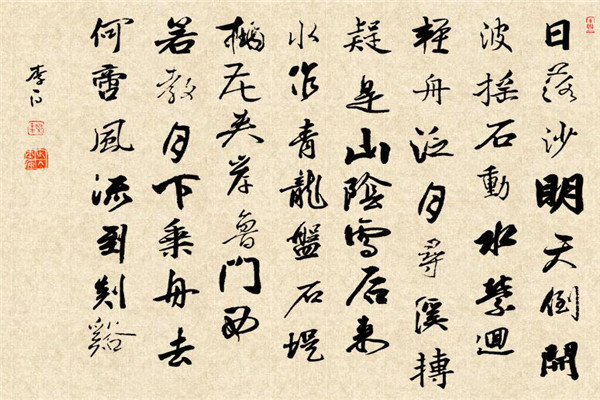 日落沙明天倒開
波摇石動水縈迴
輕舟泛月尋溪轉
疑是山陰雪后来
水作青龍盤石堤
桃花夾岸魯門西
若教月下乘舟去
何啻風流到剡谿
李白